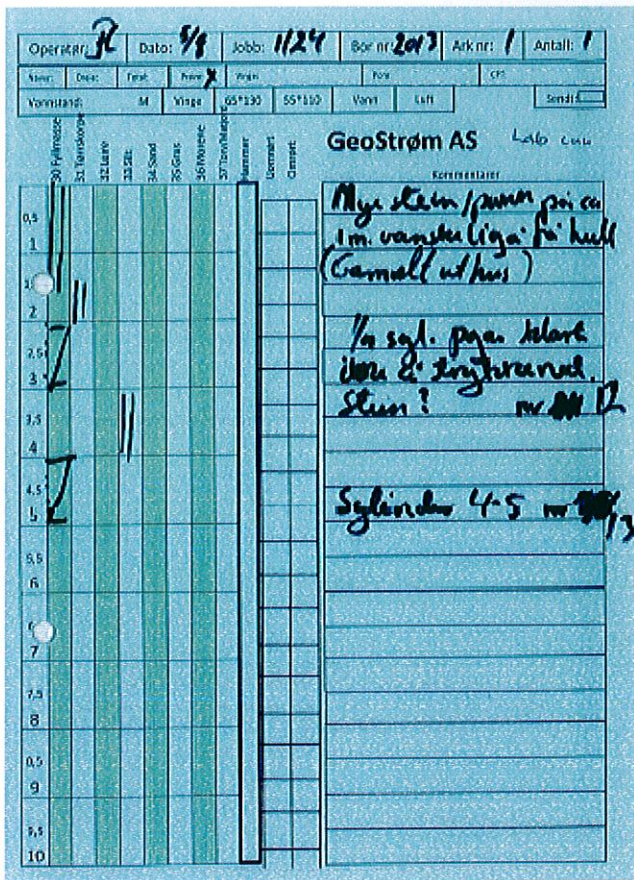 Operatør: JL Dato: 5/8 Jobb: 1124 Bor nr: 2013 Ark nr: 1 Antall: 1
Total: Prøve: X Vinge: CPT:
Vannstand: M Vinge 65*130 55*110 Vann Luft Sendt:
30 Fyllmasse
31 Tørrskorpe
32 Leire
33 Silt
34 Sand
35 Grus
36 Morene
Hammer
GeoStrøm AS
Kommentarer
Mye stein/ på ca
1 m. vanskelig å få hull
(Gammelt uthus)
1/2 syl. pga. klare
ikke å
Stein? nr 12
Sylinder 4-5 nr
13
0,5
1
2
2,5
3
3,5
4
4,5
5
5,5
6
7
7,5
8
8,5
9
9,5
10